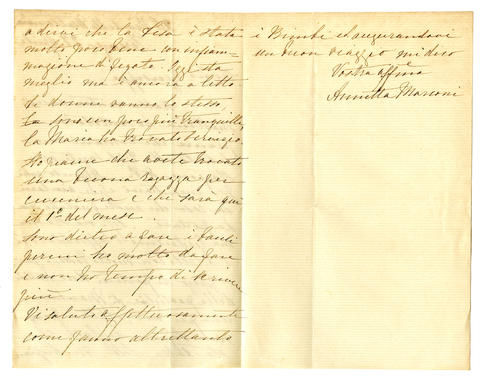 a dirvi che la Tesa è stata
molto poco bene con infiam-
mazione di fegato. Oggi sta
meglio ma è ancora a letto
Le donne vanno lo stesso
sono un poco più tranquille,
la Maria ha trovato servizio.
Ho piacere che avete trovato
una buona ragazza per
cuciniera e che sarà qui
il 1º del mese.
Sono dietro a fare i
perciò ho molto da fare
e non ho tempo di scrivere
più.
Vi saluto affettuosamente
come fanno altrettanto
i Bimbi ed augurandovi
un buon viaggio mi dico
Vostra affma
Annetta Marconi